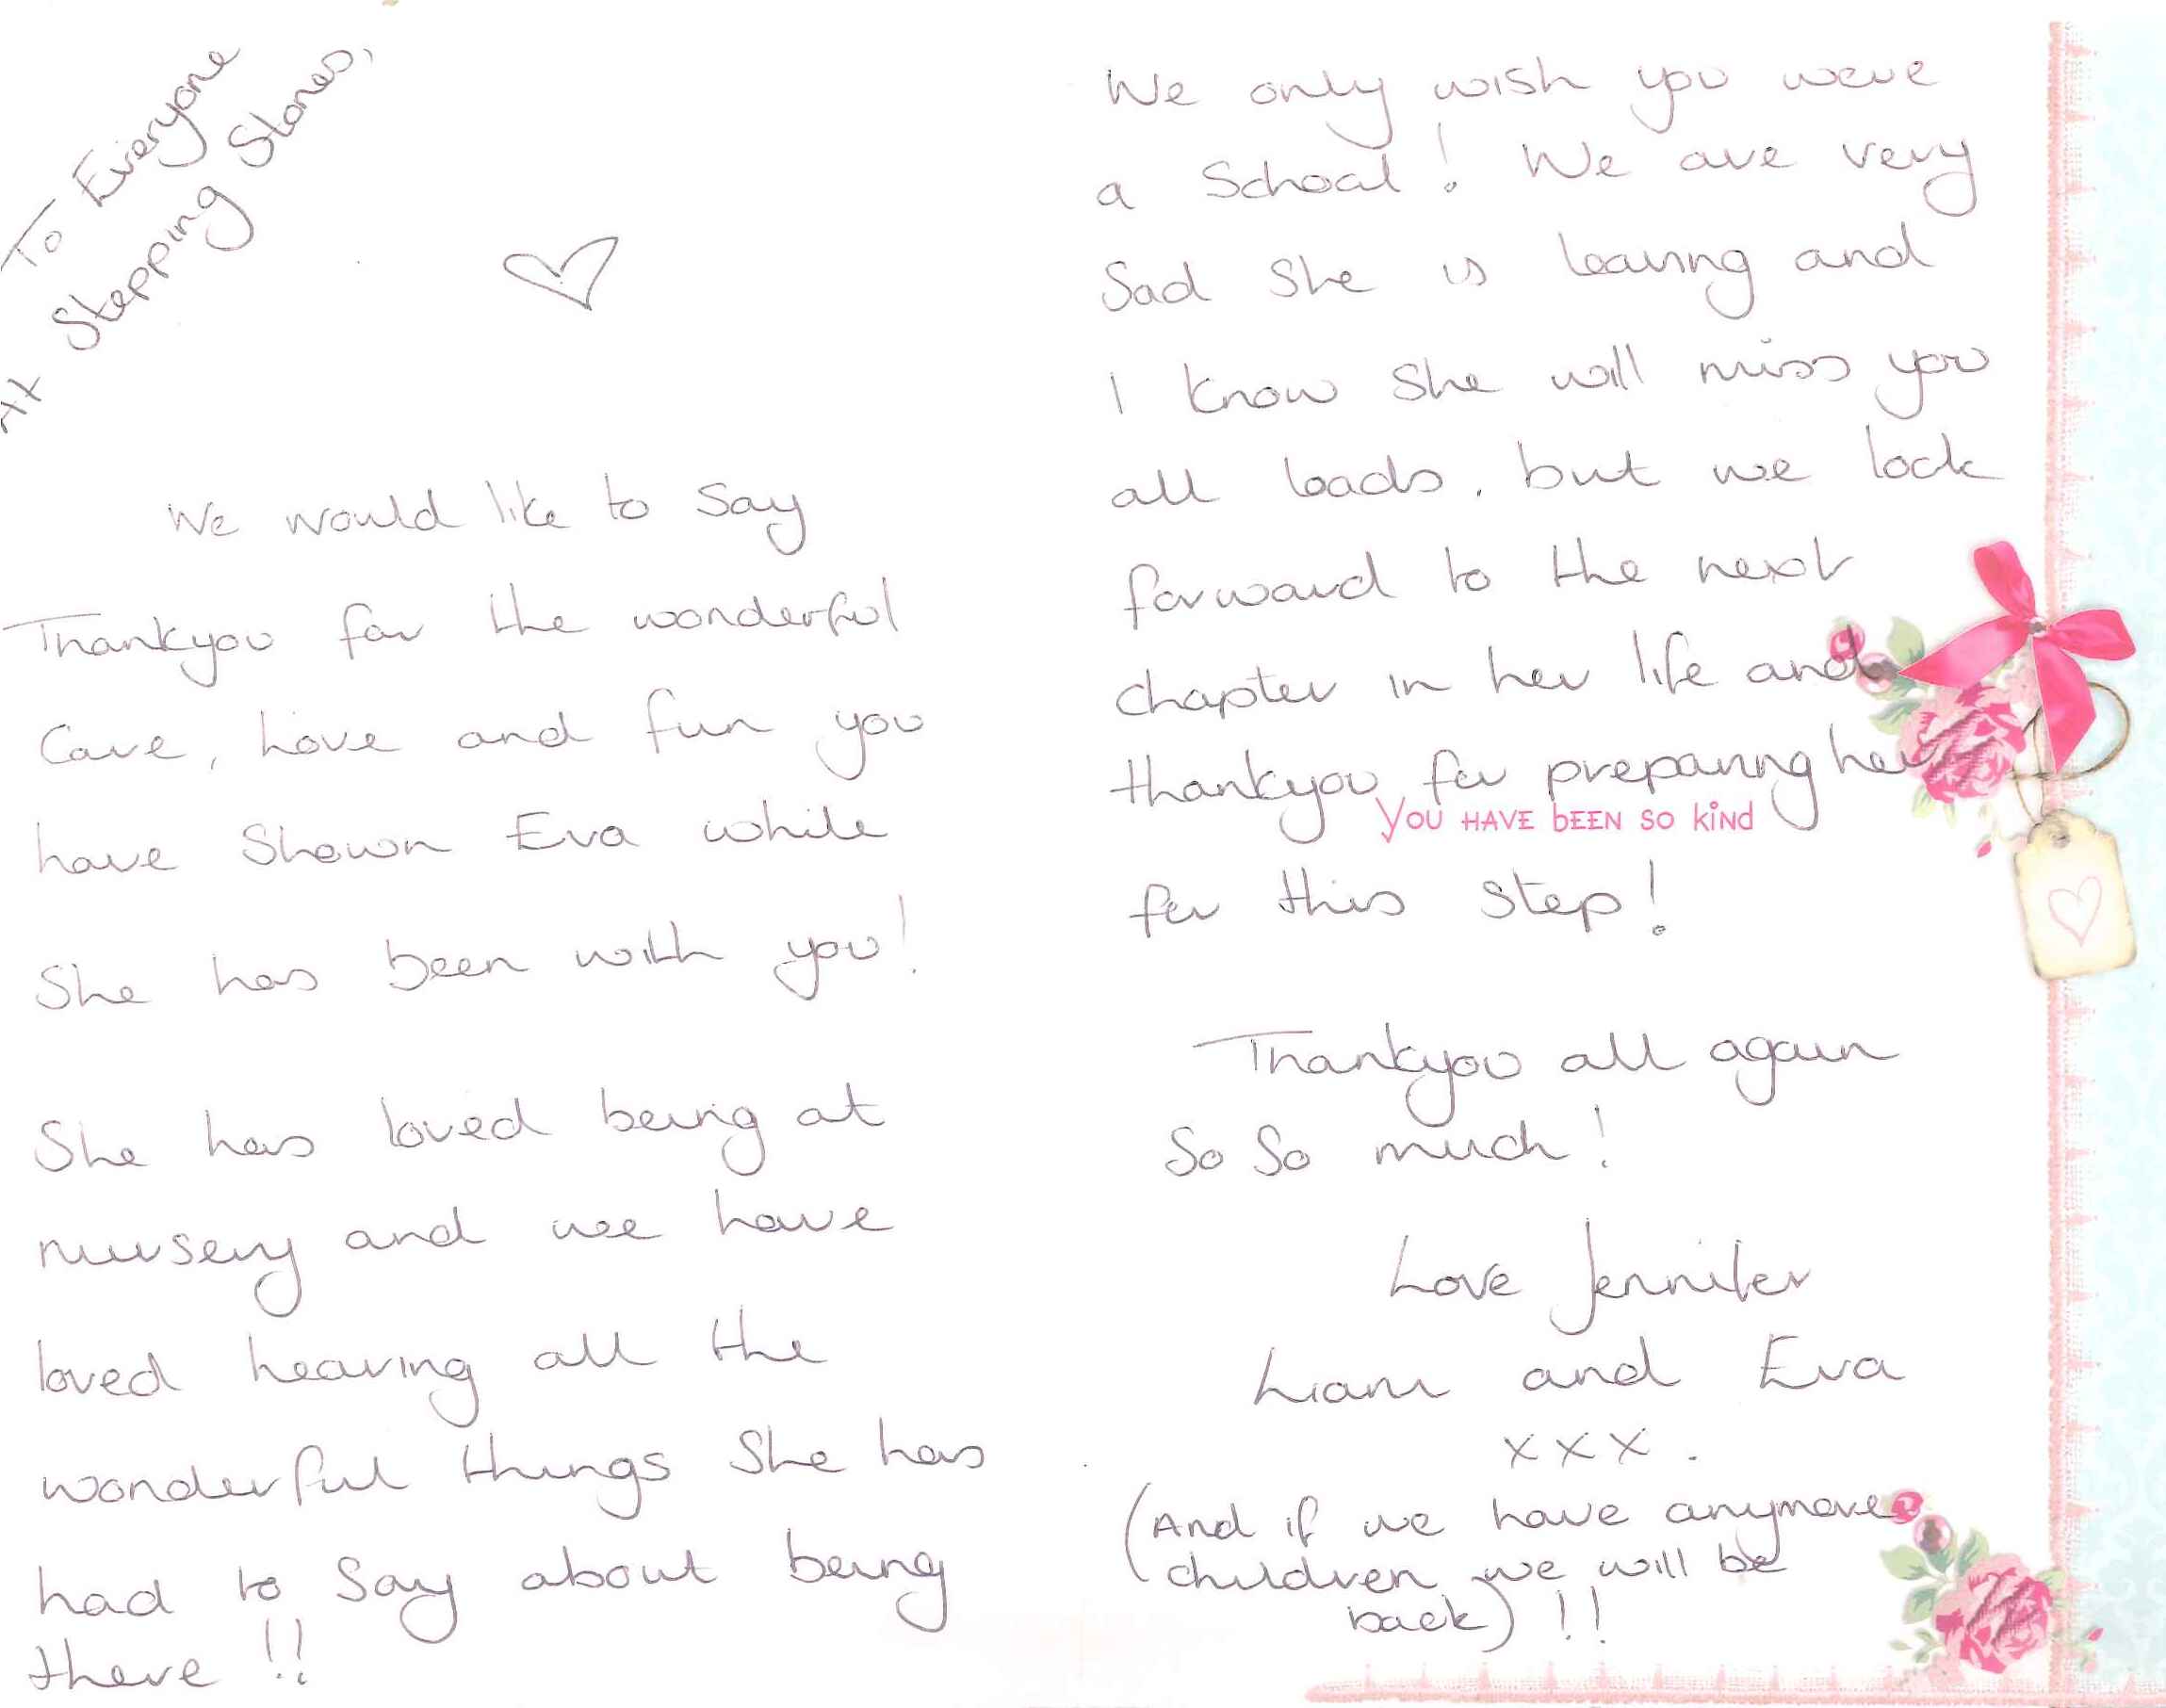 To Everyone
At Stepping Stones,
We would like to say
Thankyou for the wonderful
Care, Love and fun you
have Shown Eva while
She has been with you!
She has loved being at
nursery and we have
loved hearing all the
wonderful things She has
had to Say about being
there !!
We only wish you were
a School! We are very
Sad She is leaving and
I know She will miss you
all loads, but we look
forward to the next
chapter in her life and
thankyou for preparing her
YOU HAVE BEEN SO KIND
for this Step!
Thankyou all again
So So much!
Love Jennifer
Liam and Eva
x x x .
(And if we have anymore
children we will be
back) !!